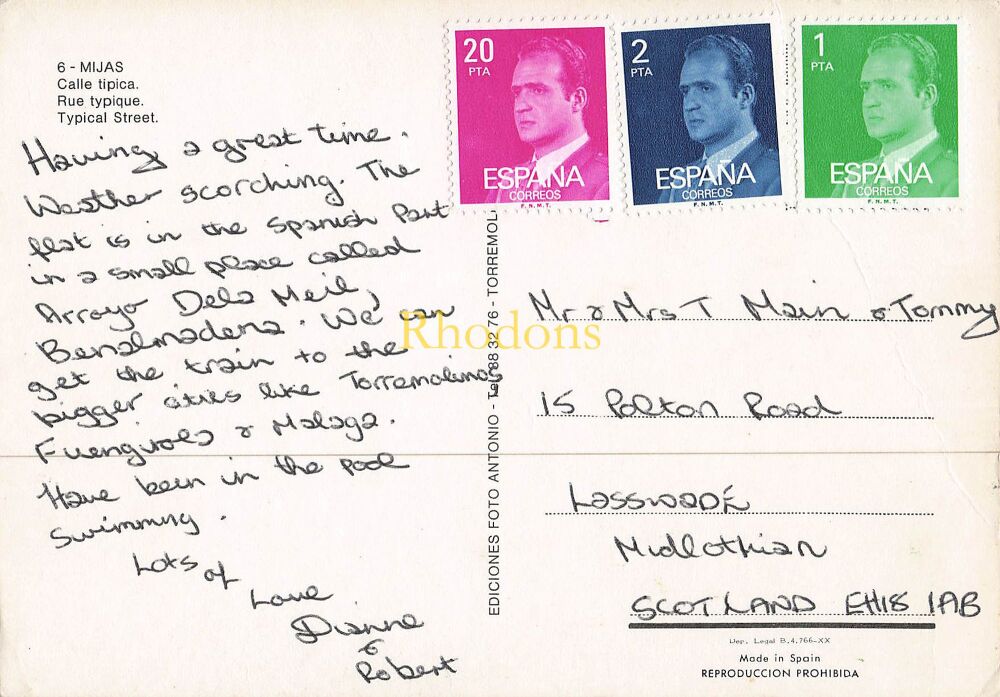 6 - MIJAS
Calle tipica.
Rue typique.
Typical Street.
Having a great time.
Weather scorching. The
flat is in the Spanish Part
in a small place called
Arroyo Dela Meil,
Benalmadena. We can
get the train to the
bigger cities like Torremolinos
Fuengirola & Malaga.
Have been in the pool
Swimming.
Lots
of
Love
Dianne
&
Robert
EDICIONES FOTO ANTONIO - Tel. 88 32 76 - TORREMOL
20
PTA
ESPAÑA
CORREOS
F.N.M.T.
2
PTA
ESPAÑA
CORREOS
F.N.M.T.
1
PTA
ESPAÑA
CORREOS
F.N.M.T.
Rhodons
Mr & Mrs T Main & Tommy
15 Polton Road
LASSWADE
Midlothian
SCOTLAND EH18 1AB
Dep. Legal B.4.766-XX
Made in Spain
REPRODUCCION PROHIBIDA